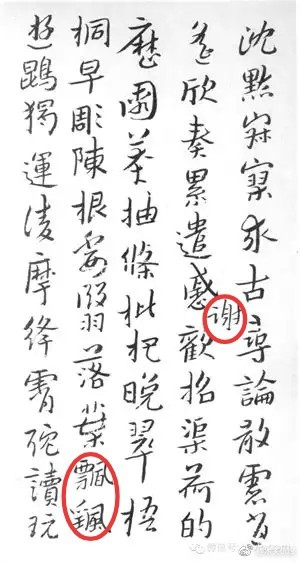 沈默寂寥求古尋論散慮逍
遙欣奏累遣慼謝歡招渠荷的
歷園莽抽條枇杷晚翠梧
桐早彫陳根委翳落葉飄颻
遊鵾獨運凌摩絳霄耽讀玩
微信号